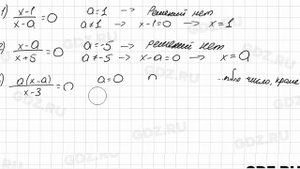 1) x-1/x-a =0 a=1 -> Решений нет
a≠1 -> x-1=0 -> x=1
2) x-a/x+5 =0 a=-5 -> решений нет
a≠-5 -> x-a=0 -> x=a
) a(x-a)/x-3 =0 a=0 число, кроме
GDZ.RU